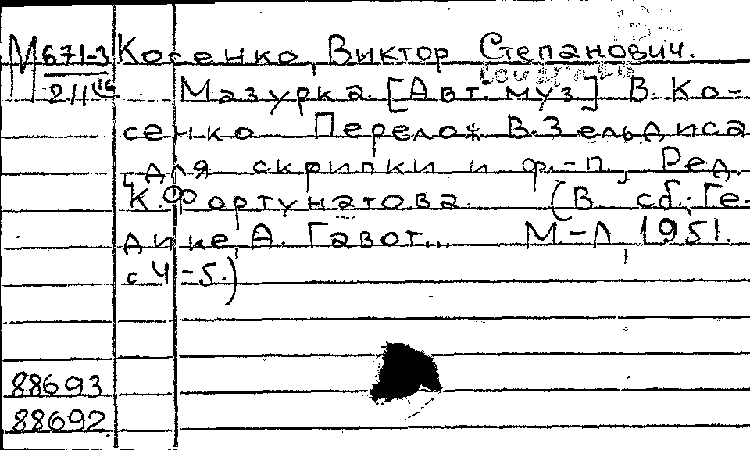 М 671-3 Косенко, Виктор Степанович.
2/II
Мазурка. [Авт. муз] В. Ко-
сенко Перелож В. Зельдиса
для скрипки и ф.-п., Ред.
К. Фортунатова. (В сб.: Ге-
дике, А. Гавот... М-Л, 1951.
с 4-5.)
88693
88692